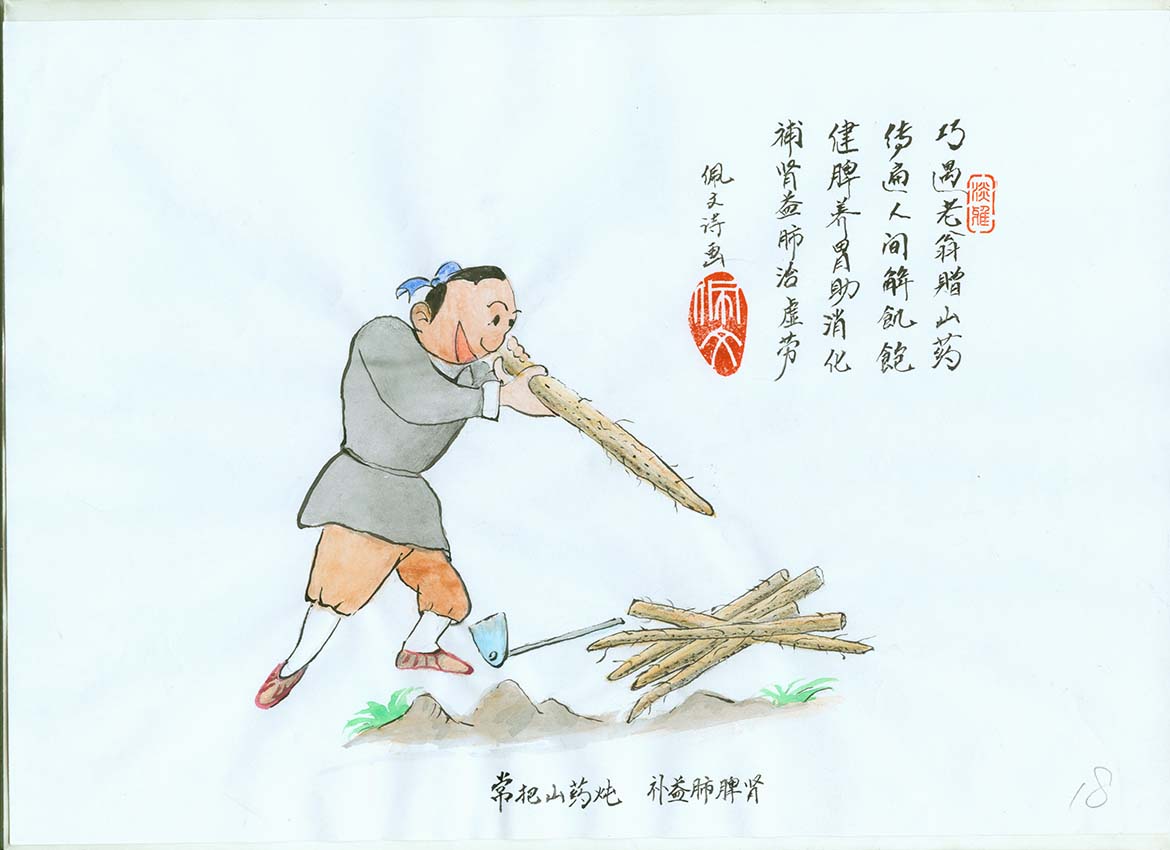 巧遇老翁赠山药
传遍人间解飢飽
健脾养胃助消化
補肾益肺治虚劳
佩文诗画
淡雅
佩文
常把山药炖 补益肺脾肾
18